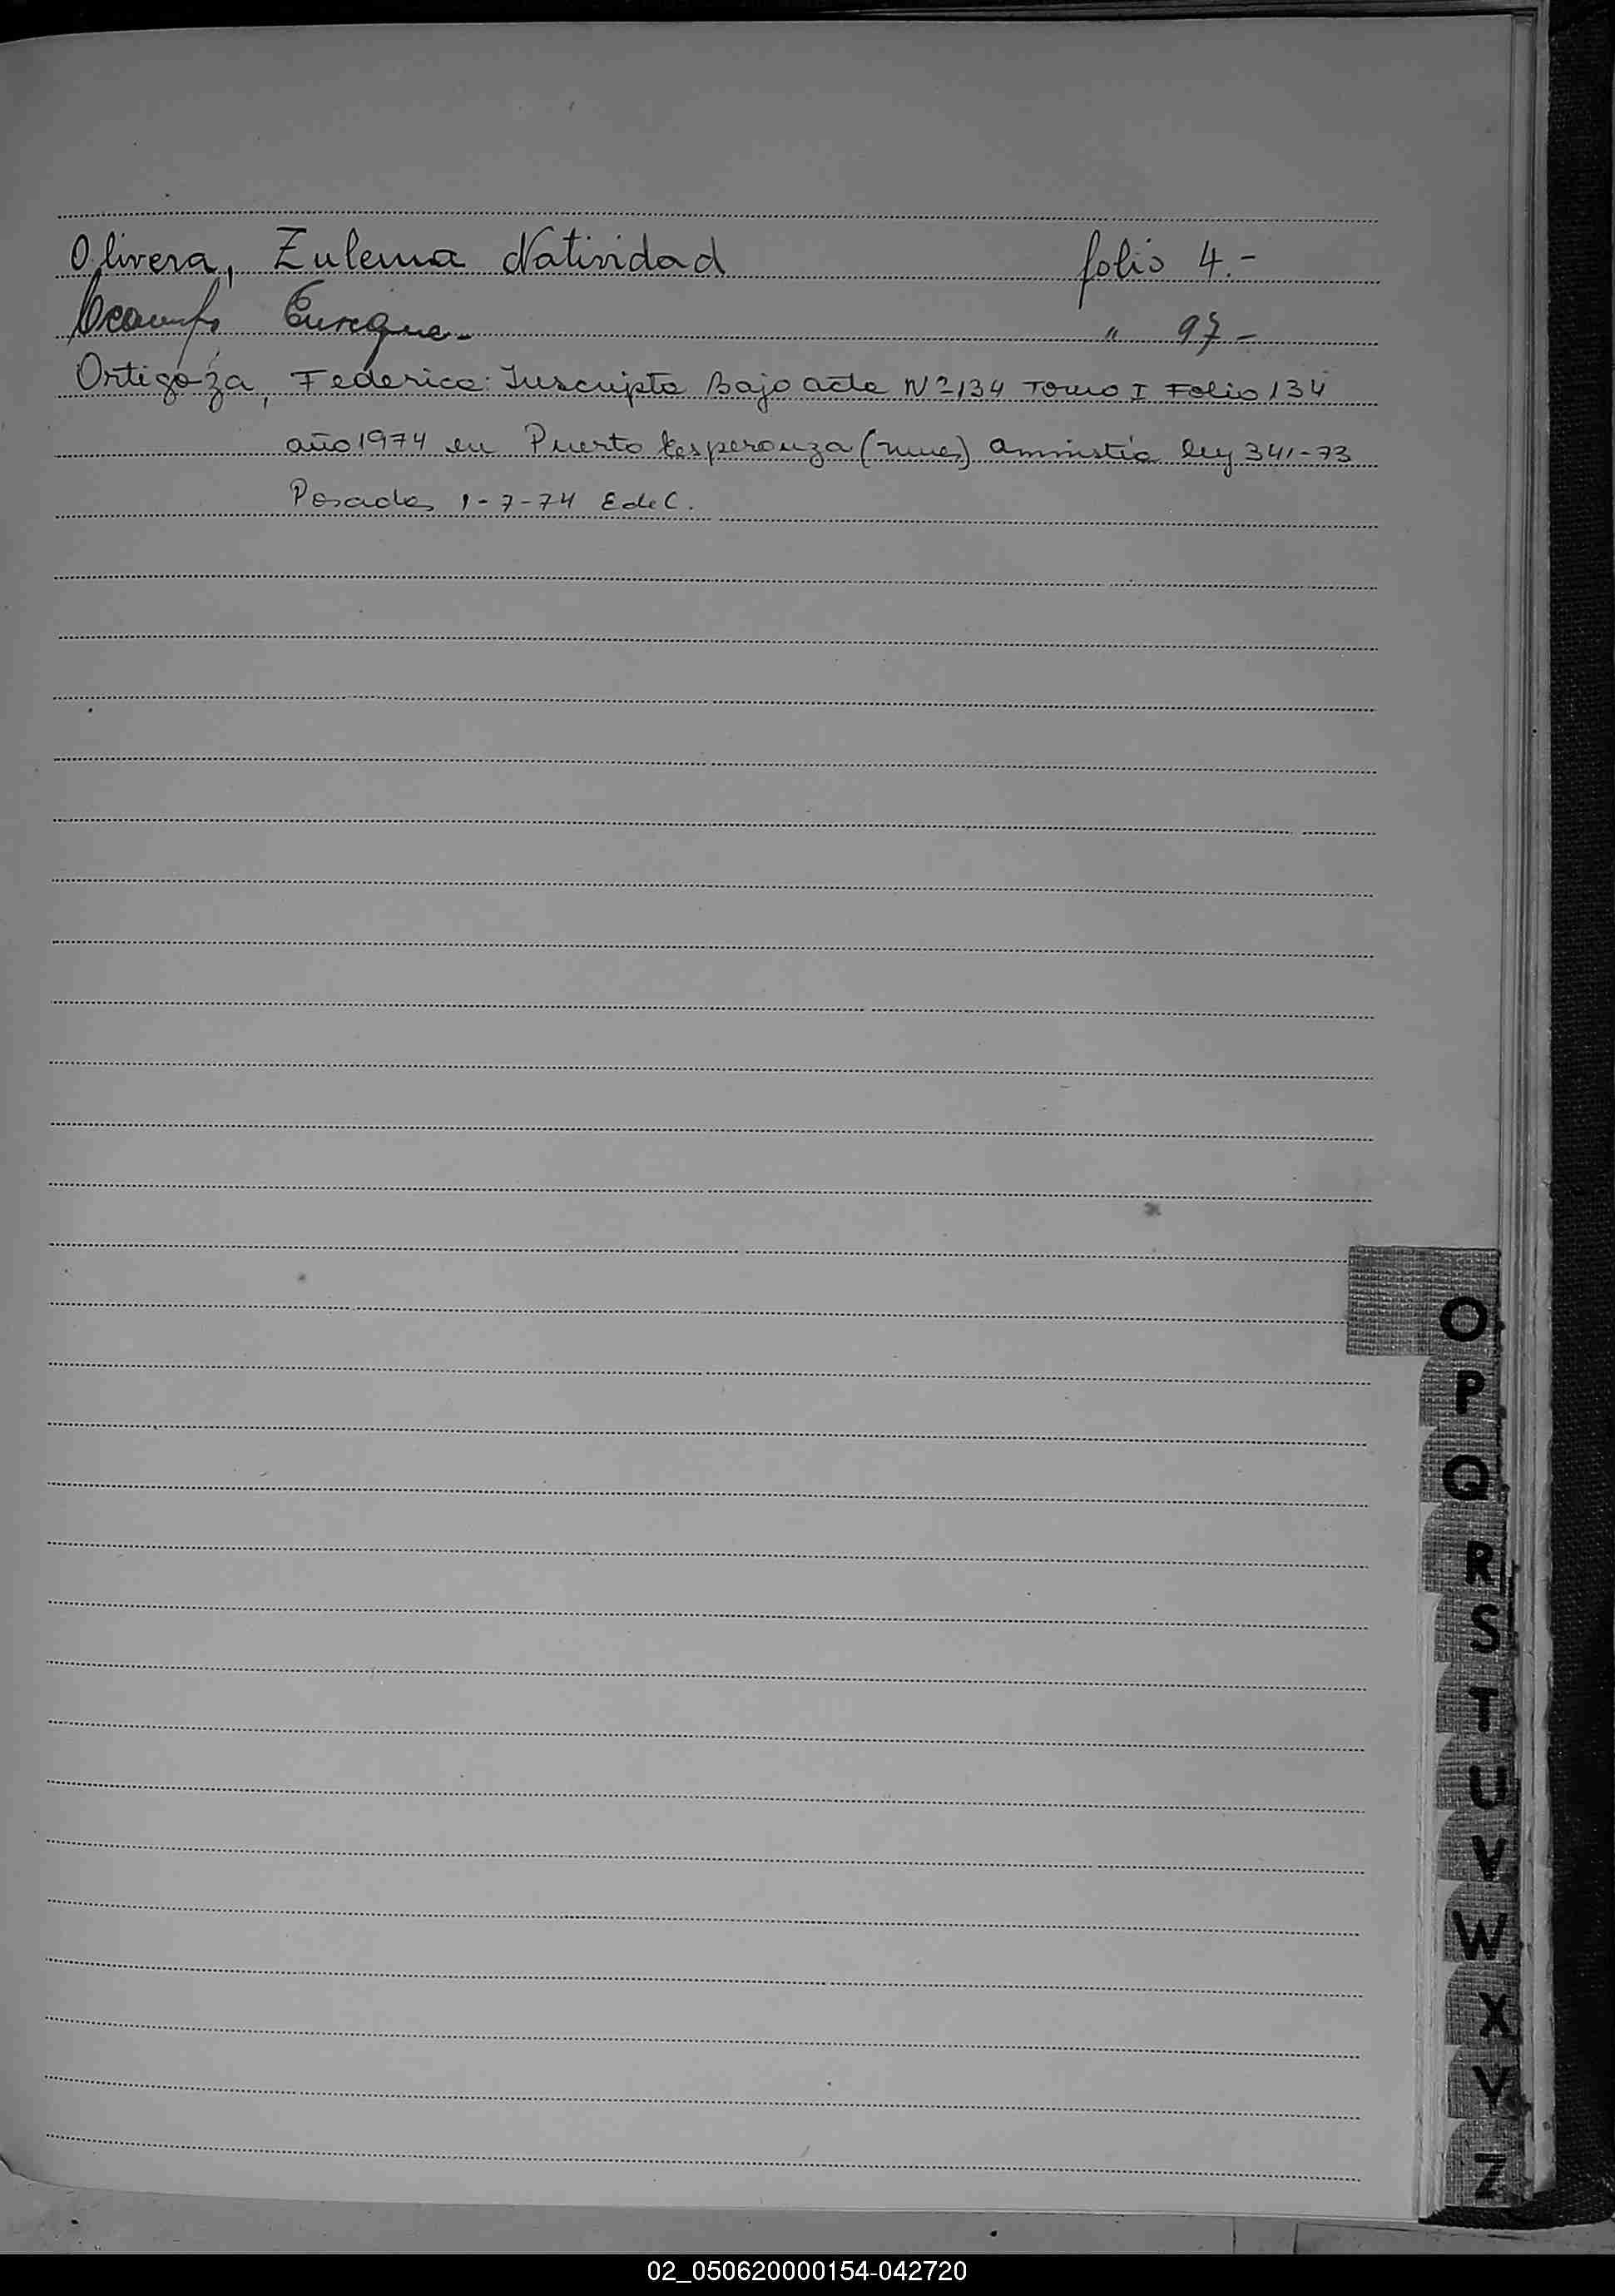 Olivera, Zulema Natividad folio 4.-
Ocampo Enrique.- " 97 -
Ortigoza, Federico: Inscripto Bajo acta Nº 134 Tomo I Folio 134
año 1974 en Puerto Esperanza (mnes) amnistía ley 341-73
Posadas 1-7-74 E de C.
O
P
Q
R
S
T
U
V
W
X
Y
Z
02_050620000154-042720